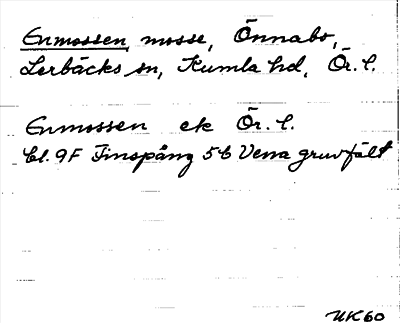 Enmossen, mosse, Önnabo,
Lerbäcks sn, Kumla hd, Ör. l.
Enmossen ek Ör. l.
bl. 9F Finspång 5b Vena gruvfält
UK60